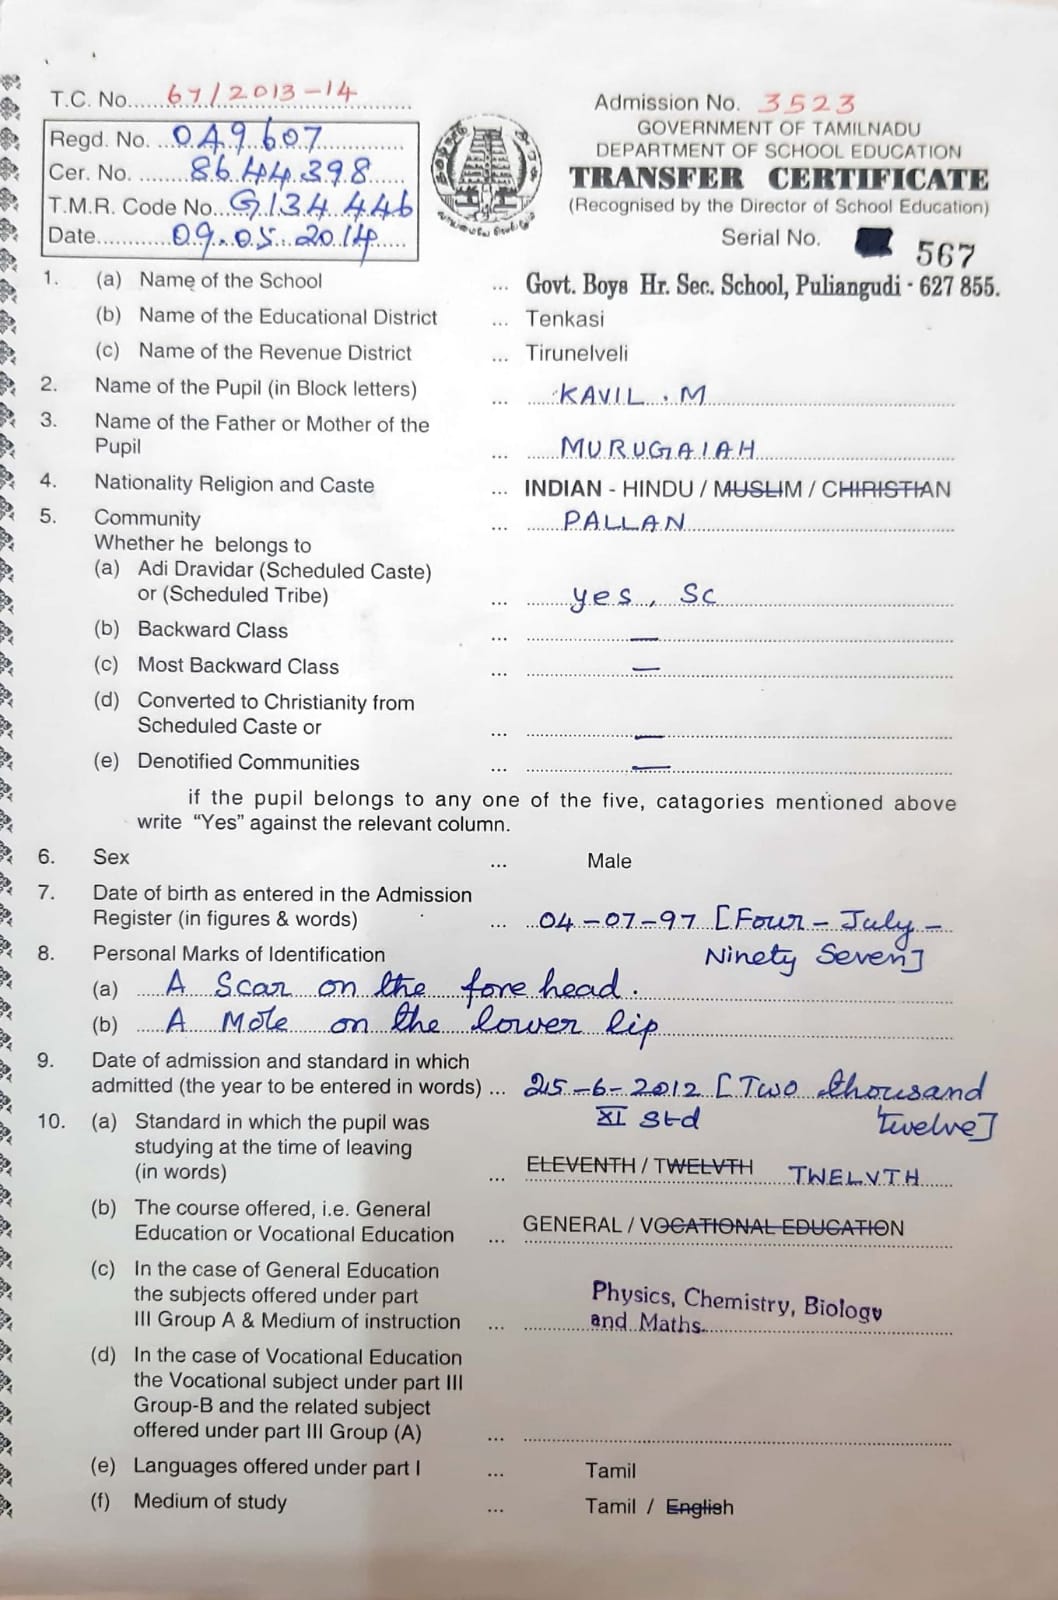 T.C. No. 67/2013-14
Admission No. 3523
Regd. No. 0A9607
Cer. No. 8644398
T.M.R. Code No. G134446
Date 09.05.2014
GOVERNMENT OF TAMILNADU
DEPARTMENT OF SCHOOL EDUCATION
TRANSFER CERTIFICATE
(Recognised by the Director of School Education)
Serial No. 567
1. (a) Name of the School ... Govt. Boys Hr. Sec. School, Puliangudi - 627 855.
(b) Name of the Educational District ... Tenkasi
(c) Name of the Revenue District ... Tirunelveli
2. Name of the Pupil (in Block letters) ... KAVIL . M
3. Name of the Father or Mother of the
Pupil ... MURUGAIAH
4. Nationality Religion and Caste ... INDIAN - HINDU / MUSLIM / CHIRISTIAN
5. Community ... PALLAN
Whether he belongs to
(a) Adi Dravidar (Scheduled Caste)
or (Scheduled Tribe) ... yes, SC
(b) Backward Class ... —
(c) Most Backward Class ... —
(d) Converted to Christianity from
Scheduled Caste or ... —
(e) Denotified Communities ... —
if the pupil belongs to any one of the five, catagories mentioned above
write “Yes” against the relevant column.
6. Sex ... Male
7. Date of birth as entered in the Admission
Register (in figures & words) ... 04-07-97 [Four - July -
Ninety Seven]
8. Personal Marks of Identification
(a) A Scar on the fore head.
(b) A Mole on the lower lip
9. Date of admission and standard in which
admitted (the year to be entered in words) ... 25-6-2012 [Two thousand
XI Std Twelve]
10. (a) Standard in which the pupil was
studying at the time of leaving
(in words) ... ELEVENTH / TWELVTH TWELVTH
(b) The course offered, i.e. General
Education or Vocational Education ... GENERAL / VOCATIONAL EDUCATION
(c) In the case of General Education
the subjects offered under part
III Group A & Medium of instruction ... Physics, Chemistry, Biology
and Maths.
(d) In the case of Vocational Education
the Vocational subject under part III
Group-B and the related subject
offered under part III Group (A) ...
(e) Languages offered under part I ... Tamil
(f) Medium of study ... Tamil / English